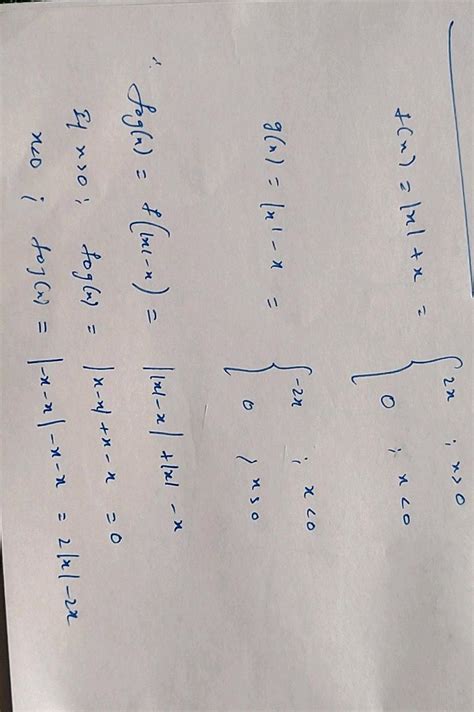 f(x) = |x| + x = { 2x ; x>0
0 ; x<0
g(x) = |x| - x = { -2x ; x<0
0 ; x≥0
∴ fog(x) = f(|x|-x) = ||x|-x| + |x| - x
If x>0 ; fog(x) = |x-x| + x - x = 0
x<0 ; fog(x) = |-x-x| -x-x = 2|x| - 2x